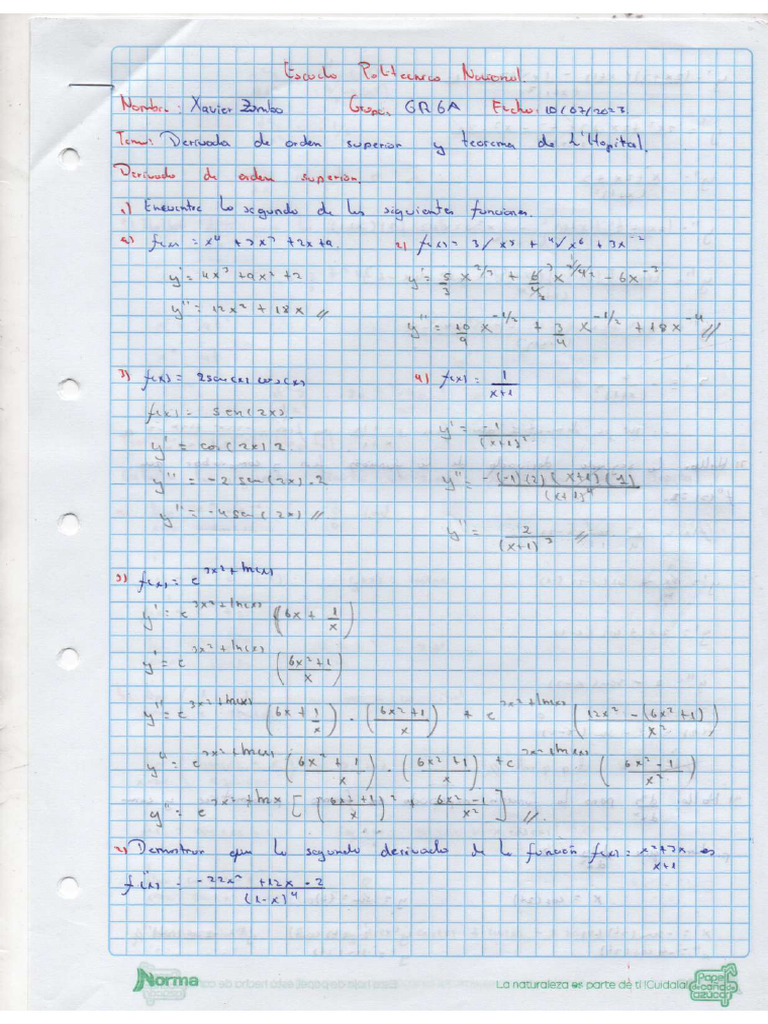 Escuela Politecnica Nacional.
Nombre: Xavier Zumba Grupo: GR6A Fecha: 10/07/2023
Tema: Derivada de orden superior y teorema de L'Hopital.
Derivada de orden superior.
1) Encuentre la segunda de las siguientes funciones.
f(x) = x⁴ + 3x³ + 2x + 9. 2) f(x) = 3√x⁵ + ⁴√x⁶ + 3x⁻²
y' = 4x³ + 9x² + 2 y' = 5/3 x^(2/3) + 6/4 x^(2/4) - 6x⁻³
y'' = 12x² + 18x // y'' = 10/9 x^(-1/2) + 3/4 x^(-1/2) + 18x⁻⁴ //
3) f(x) = 2sen(x) cos(x) 4) f(x) = 1/(x+1)
f(x) = sen(2x).
y' = cos(2x) 2 y' = -1/(x+1)²
y'' = -2 sen(2x) . 2 y'' = -(-1)(2)(x+1)(1)/(x+1)⁴
y'' = -4sen(2x) // y'' = 2/(x+1)³ //
5) f(x) = e^(3x²+ln(x))
y' = e^(3x²+ln(x)) (6x + 1/x)
y' = e^(3x²+ln(x)) ((6x²+1)/x)
y'' = e^(3x²+ln(x)) (6x + 1/x) . ((6x²+1)/x) + e^(3x²+ln(x)) ((12x² - (6x²+1))/x²)
y'' = e^(3x²+ln(x)) ((6x²+1)/x) . ((6x²+1)/x) + e^(3x²+ln(x)) ((6x²-1)/x²)
y'' = e^(3x²+lnx) [((6x²+1)/x)² + (6x²-1)/x²] //.
2) Demostrar que la segunda derivada de la función f(x) = (x²+3x)/(x+1) es
f''(x) = (-22x² + 12x - 2)/(1-x)⁴
Norma
La naturaleza es parte de ti ¡Cuidala!
Papel de caña de azúcar